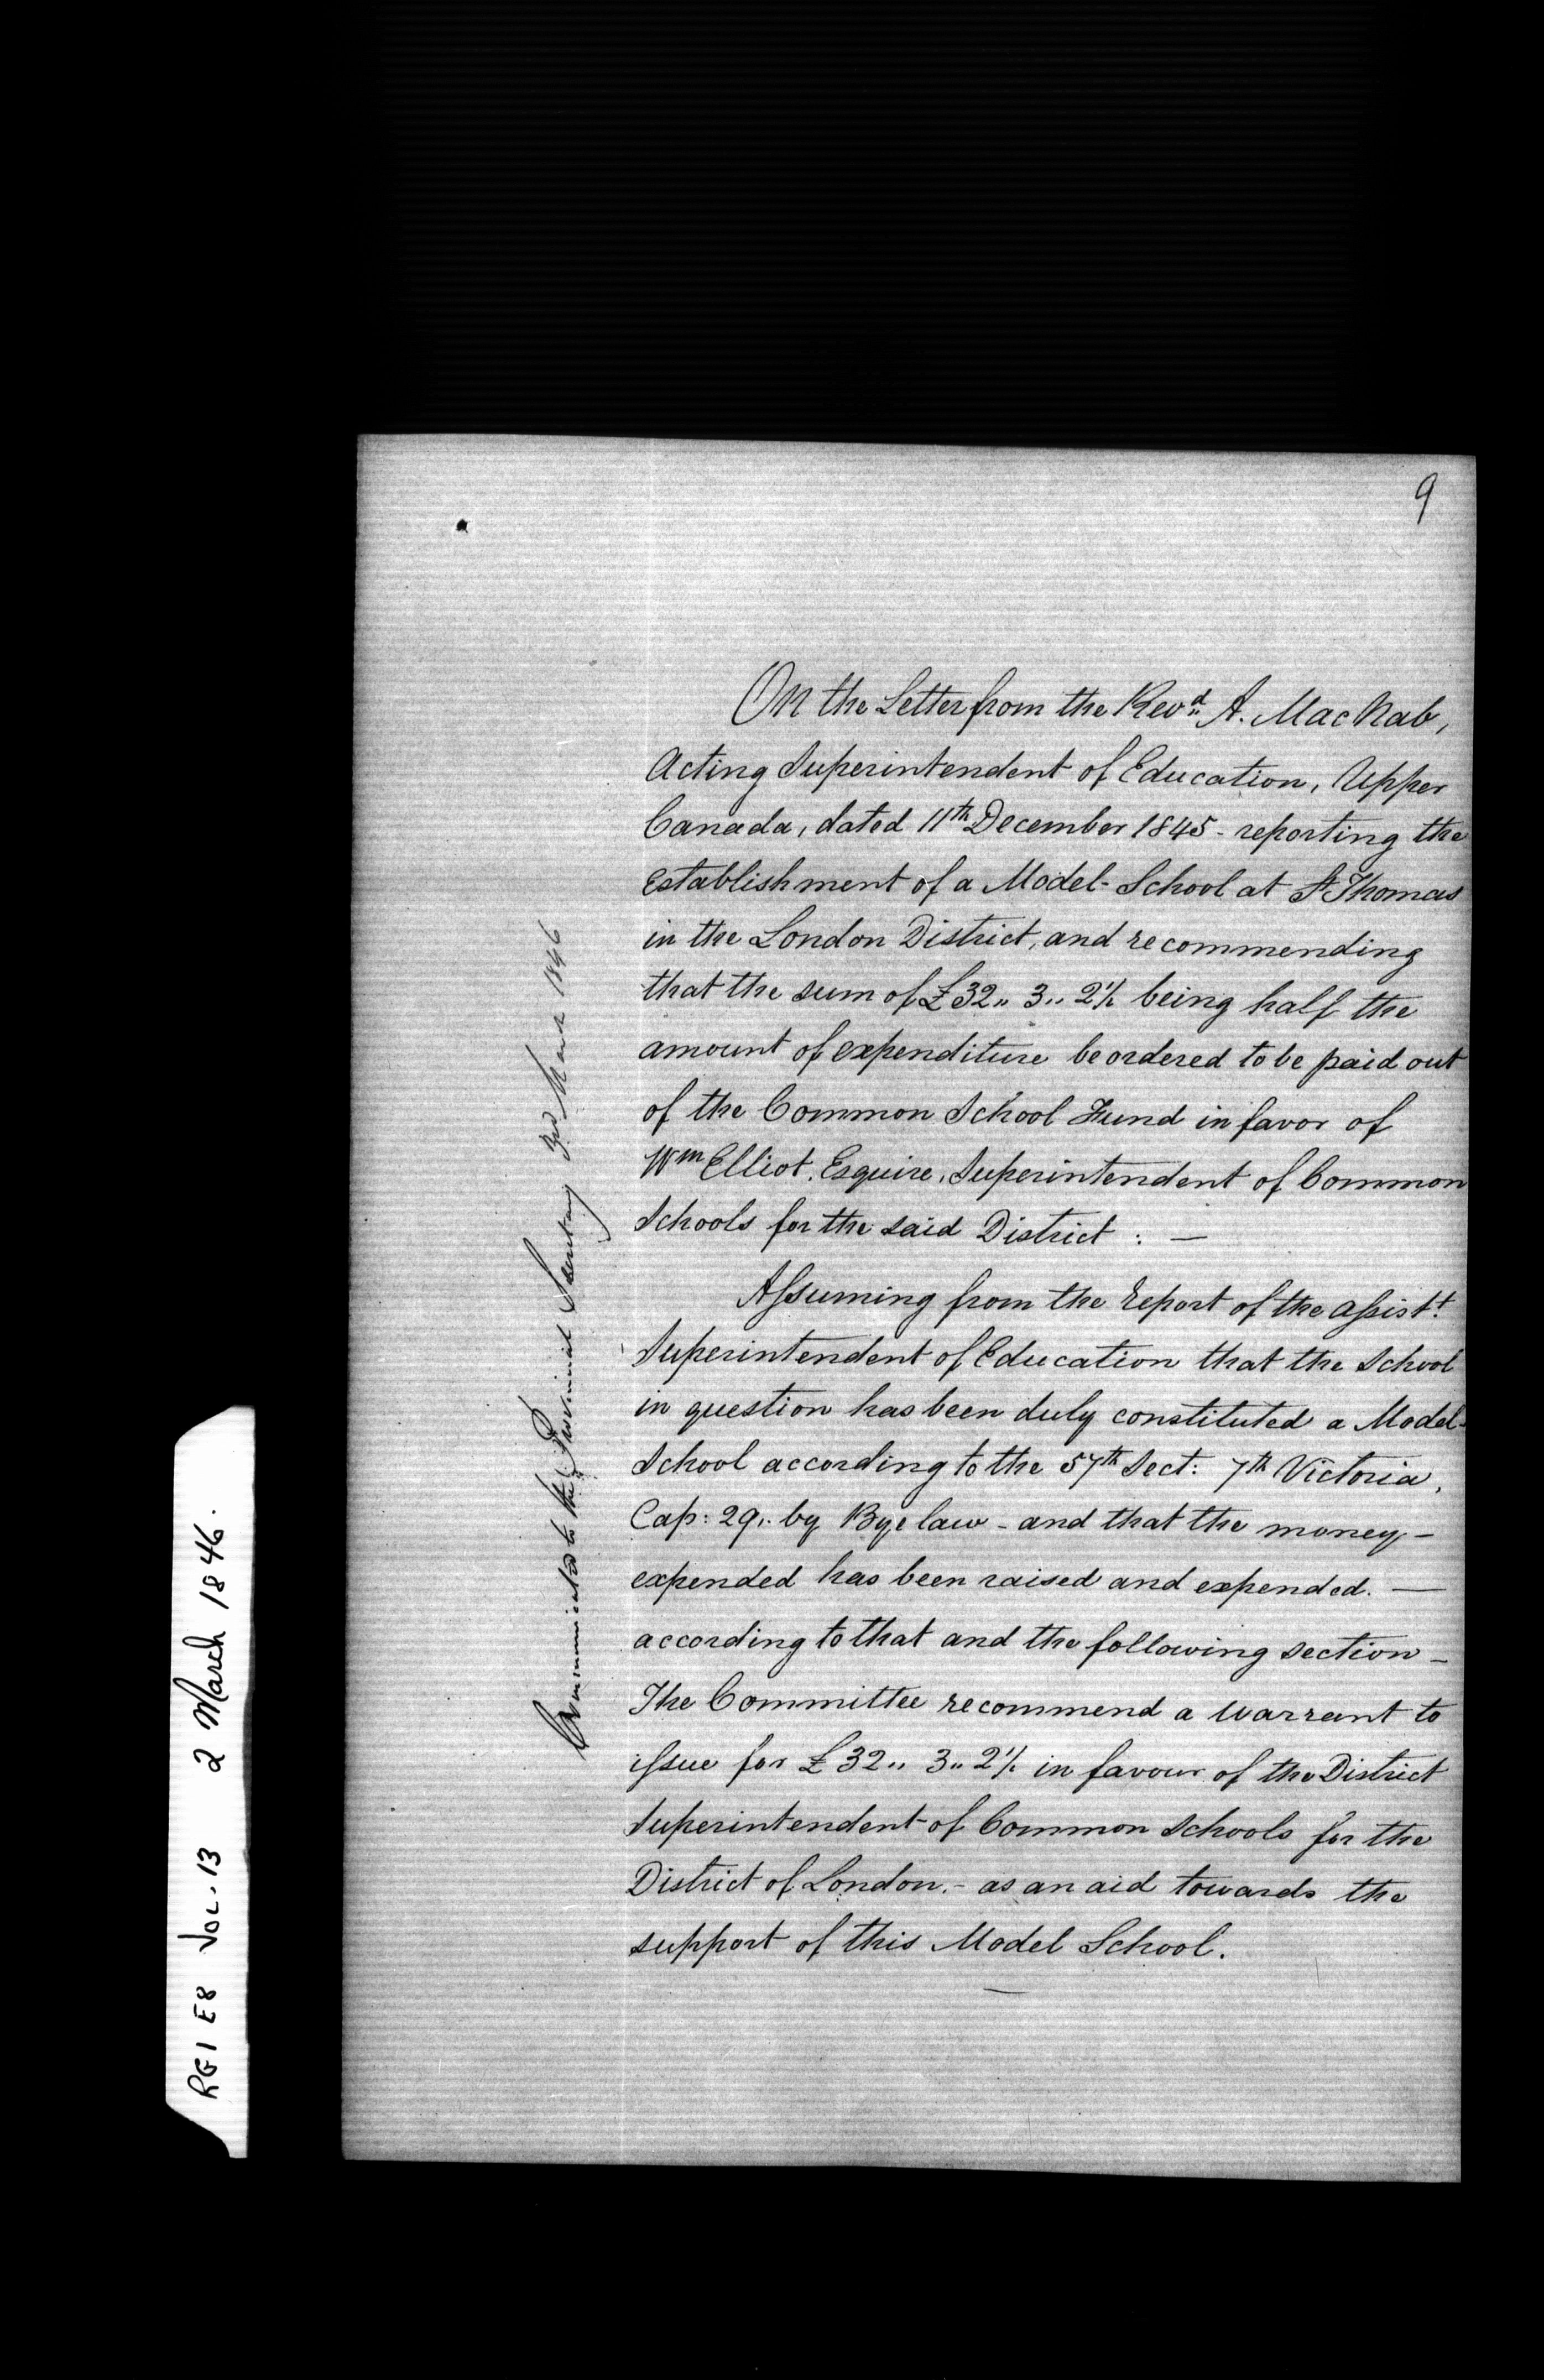 9
On the Letter from the Revd. A. MacNab,
Acting Superintendent of Education, Upper
Canada, dated 11th December 1845 - reporting the
Establishment of a Model-School at St Thomas
in the London District, and recommending
that the sum of £32,, 3,, 2½ being half the
amount of expenditure be ordered to be paid out
of the Common School Fund in favor of
Wm Elliot, Esquire, Superintendent of Common
Schools for the said District : —
Assuming from the Report of the Assistt.
Superintendent of Education that the School
in question has been duly constituted a Model-
School according to the 57th Sect: 7th Victoria,
Cap: 29,. by Bye law - and that the money -
expended has been raised and expended. —
according to that and the following section -
The Committee recommend a Warrant to
issue for £32,, 3,, 2½ in favour of the District
Superintendent of Common Schools for the
District of London, - as an aid towards the
support of this Model School.
—
Communicated to the Provincial Secretary 3rd March 1846
RG1 E8 VOL. 13 2 March 1846.